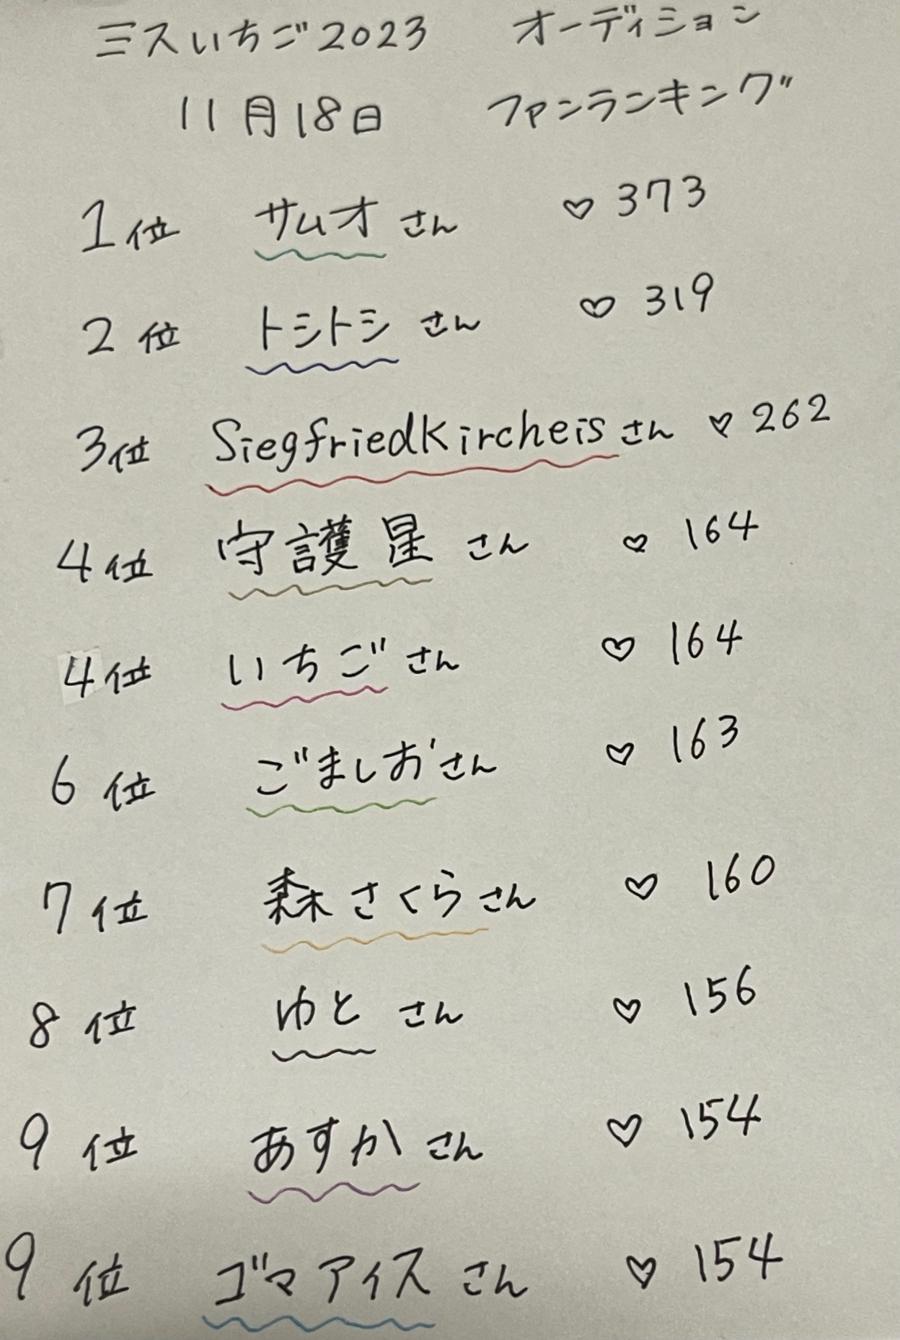 ミスいちご2023 オーディション
11月18日 ファンランキング
1位 サムオ さん ♡ 373
2位 トシトシ さん ♡ 319
3位 SiegfriedKircheis さん ♡ 262
4位 守護星 さん ♡ 164
4位 いちご さん ♡ 164
6位 ごましお さん ♡ 163
7位 森さくら さん ♡ 160
8位 ゆと さん ♡ 156
9位 あすか さん ♡ 154
9位 ゴマアイス さん ♡ 154